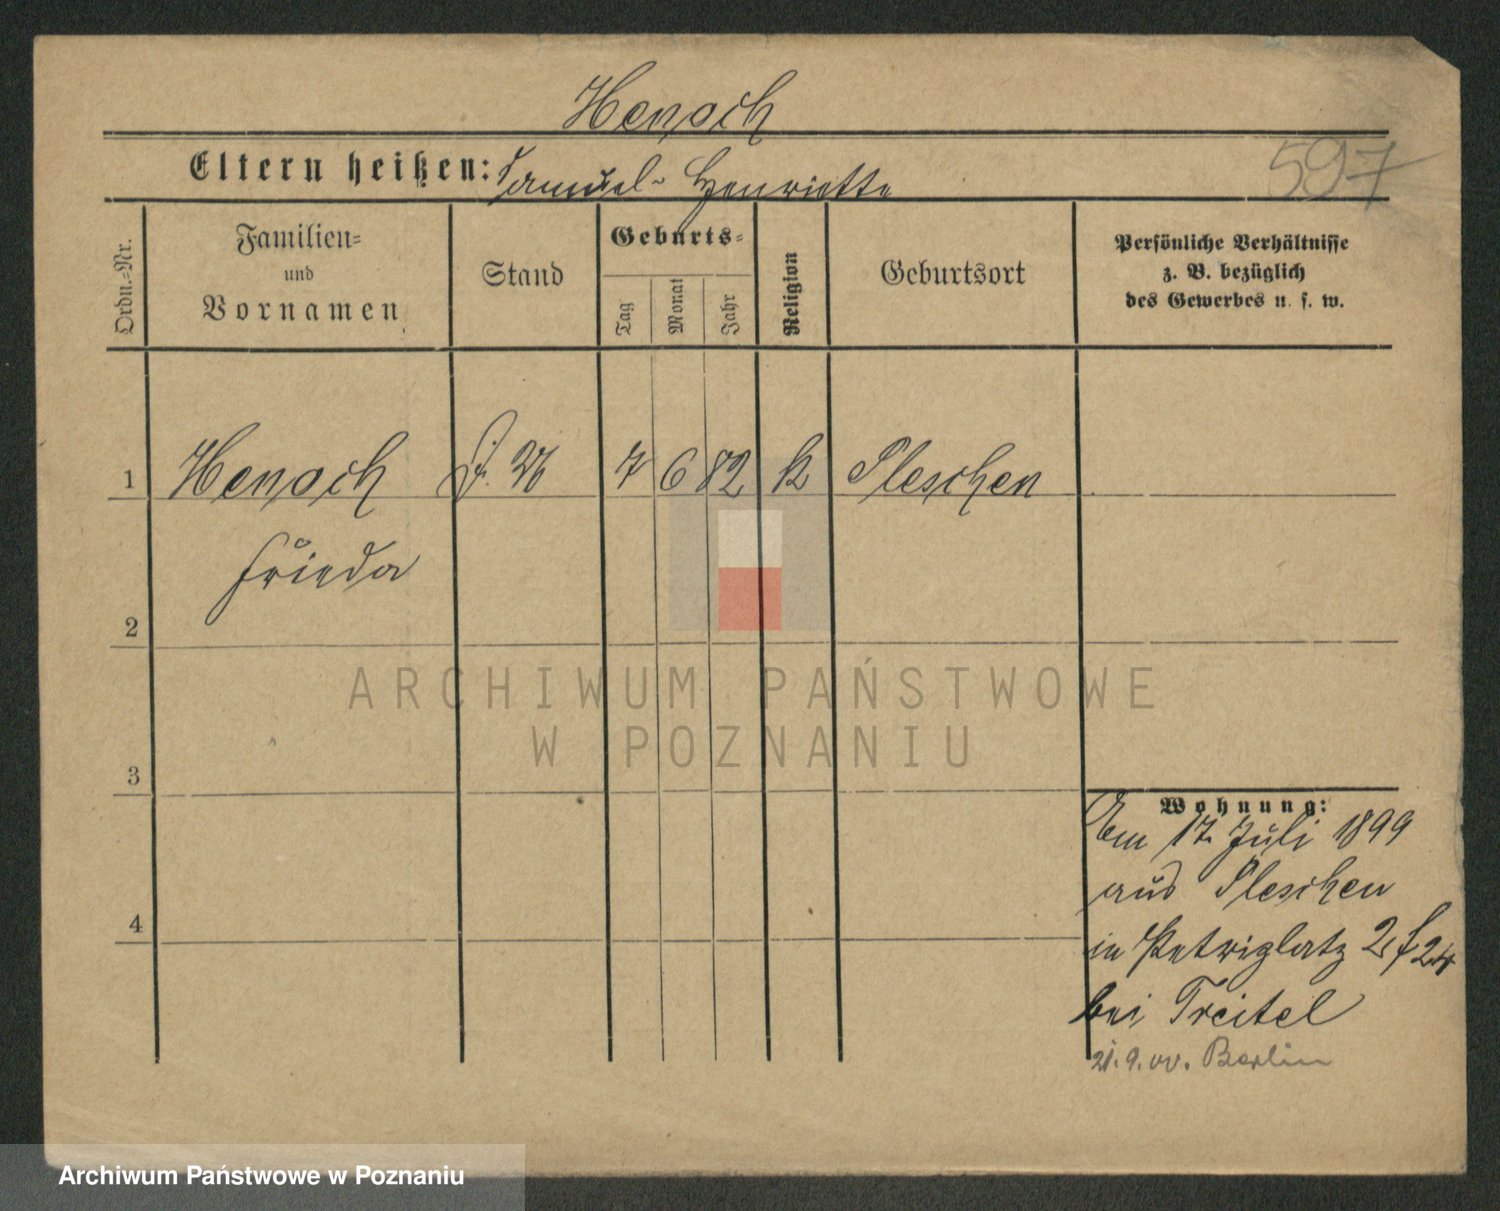 Henoch
Eltern heißen: Samuel - Henriette
597
Ordn.-Nr.
Familien-
und
Vornamen
Stand
Geburts-
Tag
Monat
Jahr
Religion
Geburtsort
Persönliche Verhältnisse
z. B. bezüglich
des Gewerbes u. s. w.
1 Henoch 7 6 82 Pleschen
Frieda
2
ARCHIWUM PAŃSTWOWE
W POZNANIU
3
Wohnung:
Am 17 Juli 1899
aus Pleschen
4
in Petriplatz 2,
bei Treitel
21.9.00. Berlin
Archiwum Państwowe w Poznaniu